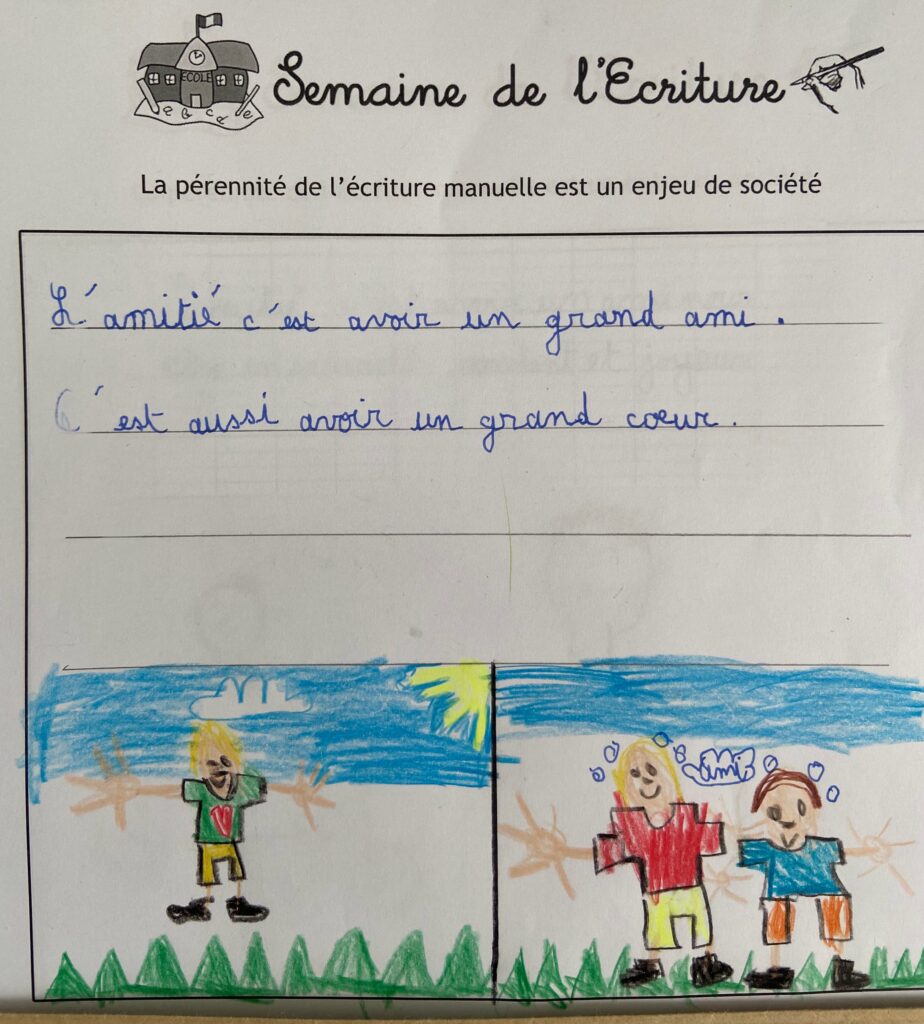 ECOLE
Semaine de l'Ecriture
La pérennité de l'écriture manuelle est un enjeu de société
L'amitié c'est avoir un grand ami.
C'est aussi avoir un grand coeur.
ami